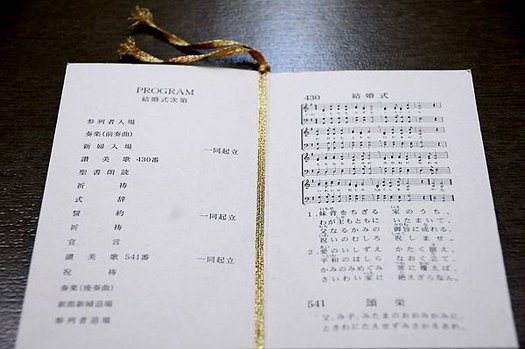 PROGRAM
結婚式次第
参列者入場
奏楽(前奏曲)
新婦入場 一同起立
讃美歌430番
聖書朗読
祈祷
式辞
誓約 一同起立
祈祷
宣言
讃美歌541番 一同起立
祝祷
奏楽(後奏曲)
新郎新婦退場
参列者退場
430 結婚式
1. 妹背をちぎる 家のうち、
わが主もともに いたまいて、
父なるかみの 御旨に成れる、
祝いのむしろ 祝しませ。
2. 愛のいしずえ かたく据え、
平和のはしら なおく立て、
かみのみめぐみ 常に覆えば、
さいわい家に 絶えざらなん。
541 頌栄
父、み子、みたまのおおみかみに、
ときわにたえせずみさかえあれ、